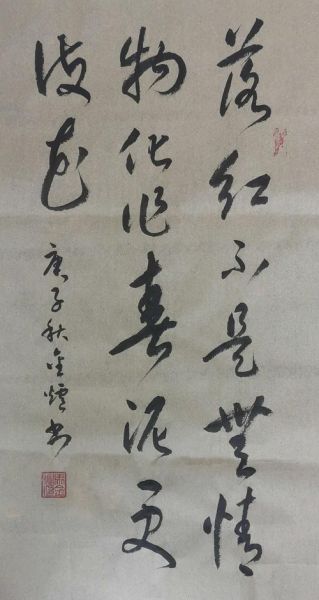 落红不是無情
物化作春泥更
波花
庚子秋金爐书